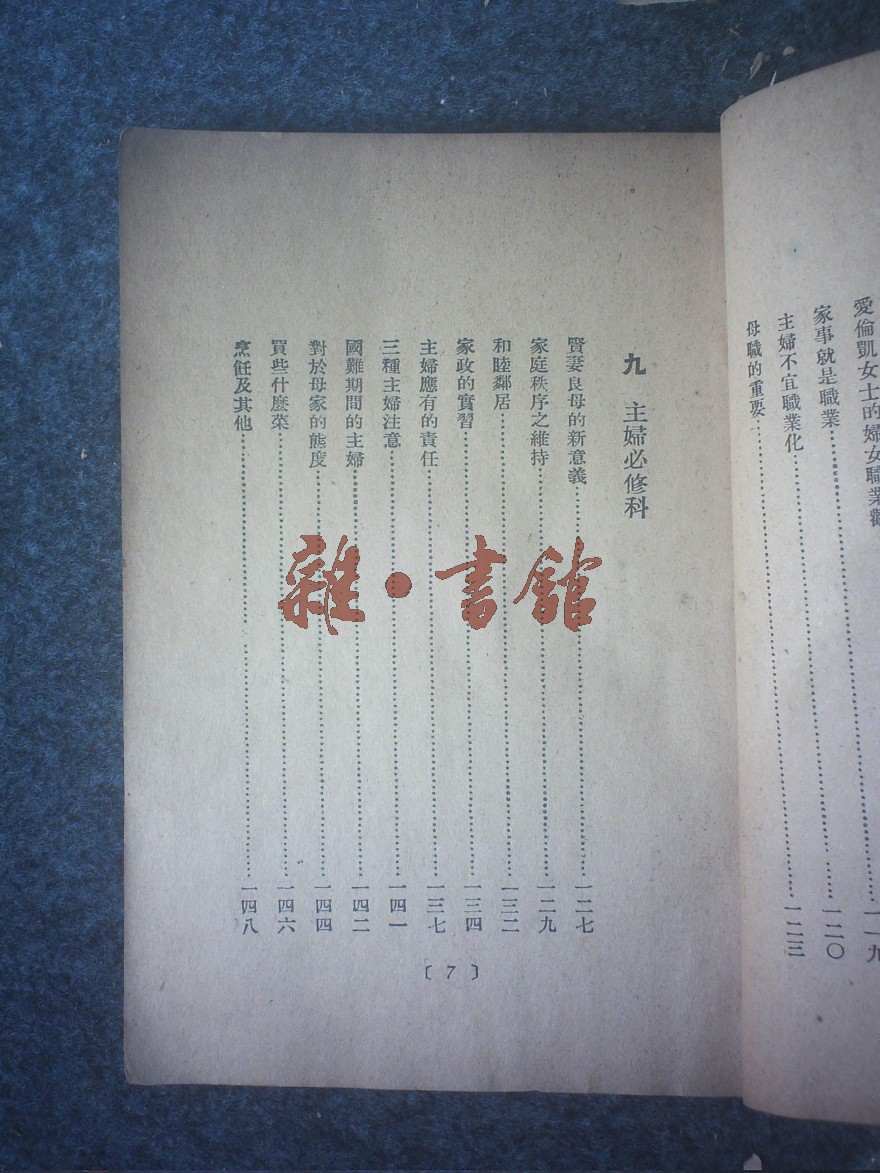 愛倫凱女士的婦女職業觀……一一九
家事就是職業……一二〇
主婦不宜職業化……一二三
母職的重要……
九 主婦必修科
賢妻良母的新意義……一二七
家庭秩序之維持……一二九
和睦鄰居……一三二
家政的實習……一三四
主婦應有的責任……一三七
三種主婦注意……一四一
國難期間的主婦……一四二
對於母家的態度……一四四
買些什麼菜……一四六
烹飪及其他……一四八
〔7〕
雜·書館